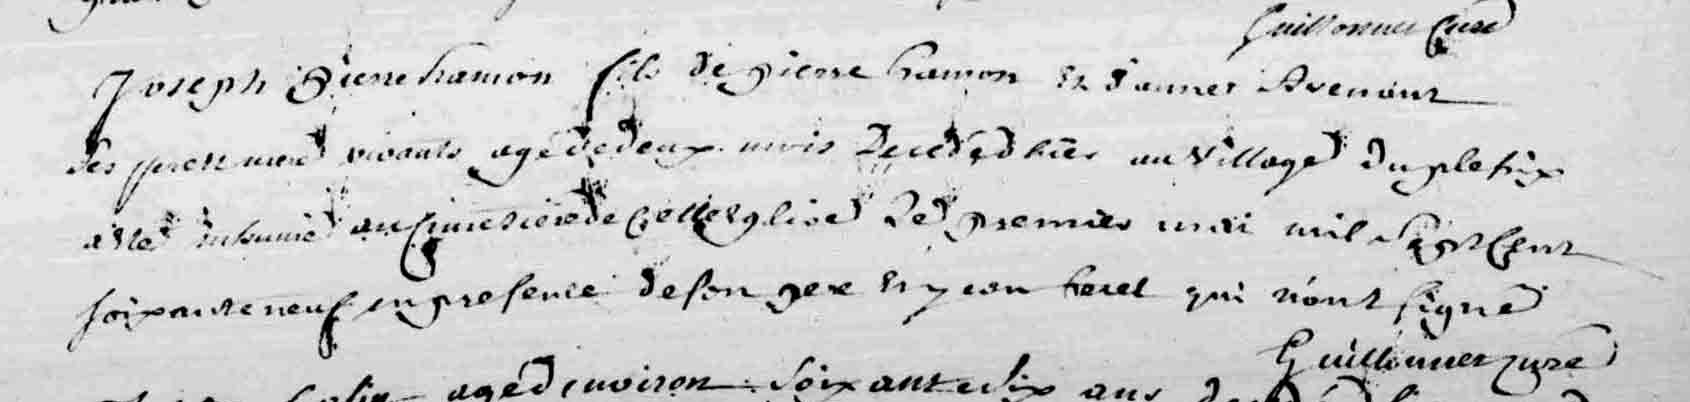 Guillonnet Curé
Joseph Pierre hamon fils de pierre hamon Et d'annes Avenant
ses pere et mere vivants agé de deux mois Decedé d'hier au Village du plesix
a Eté inhumé au Cimetiere de Cette Eglise Le premier mai mil Sept Cent
soixante neuf en presence de son pere Et jean heret qui n'ont signé
Guillonnet curé
agé d'environ Soixante dix ans